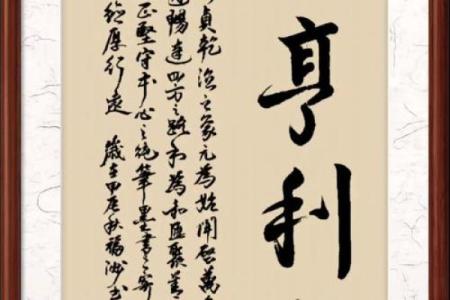 亨利
貞乾德之象元為始開啓萬
通暢達四方之路利為和匯聚善
正堅守本心之純筆墨書之寄
厚行遠 歲在甲辰秋福